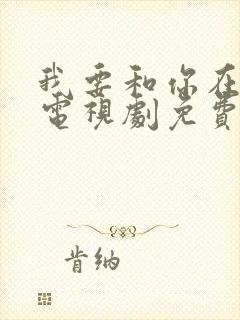 我要和你在
電視劇免費
肯納